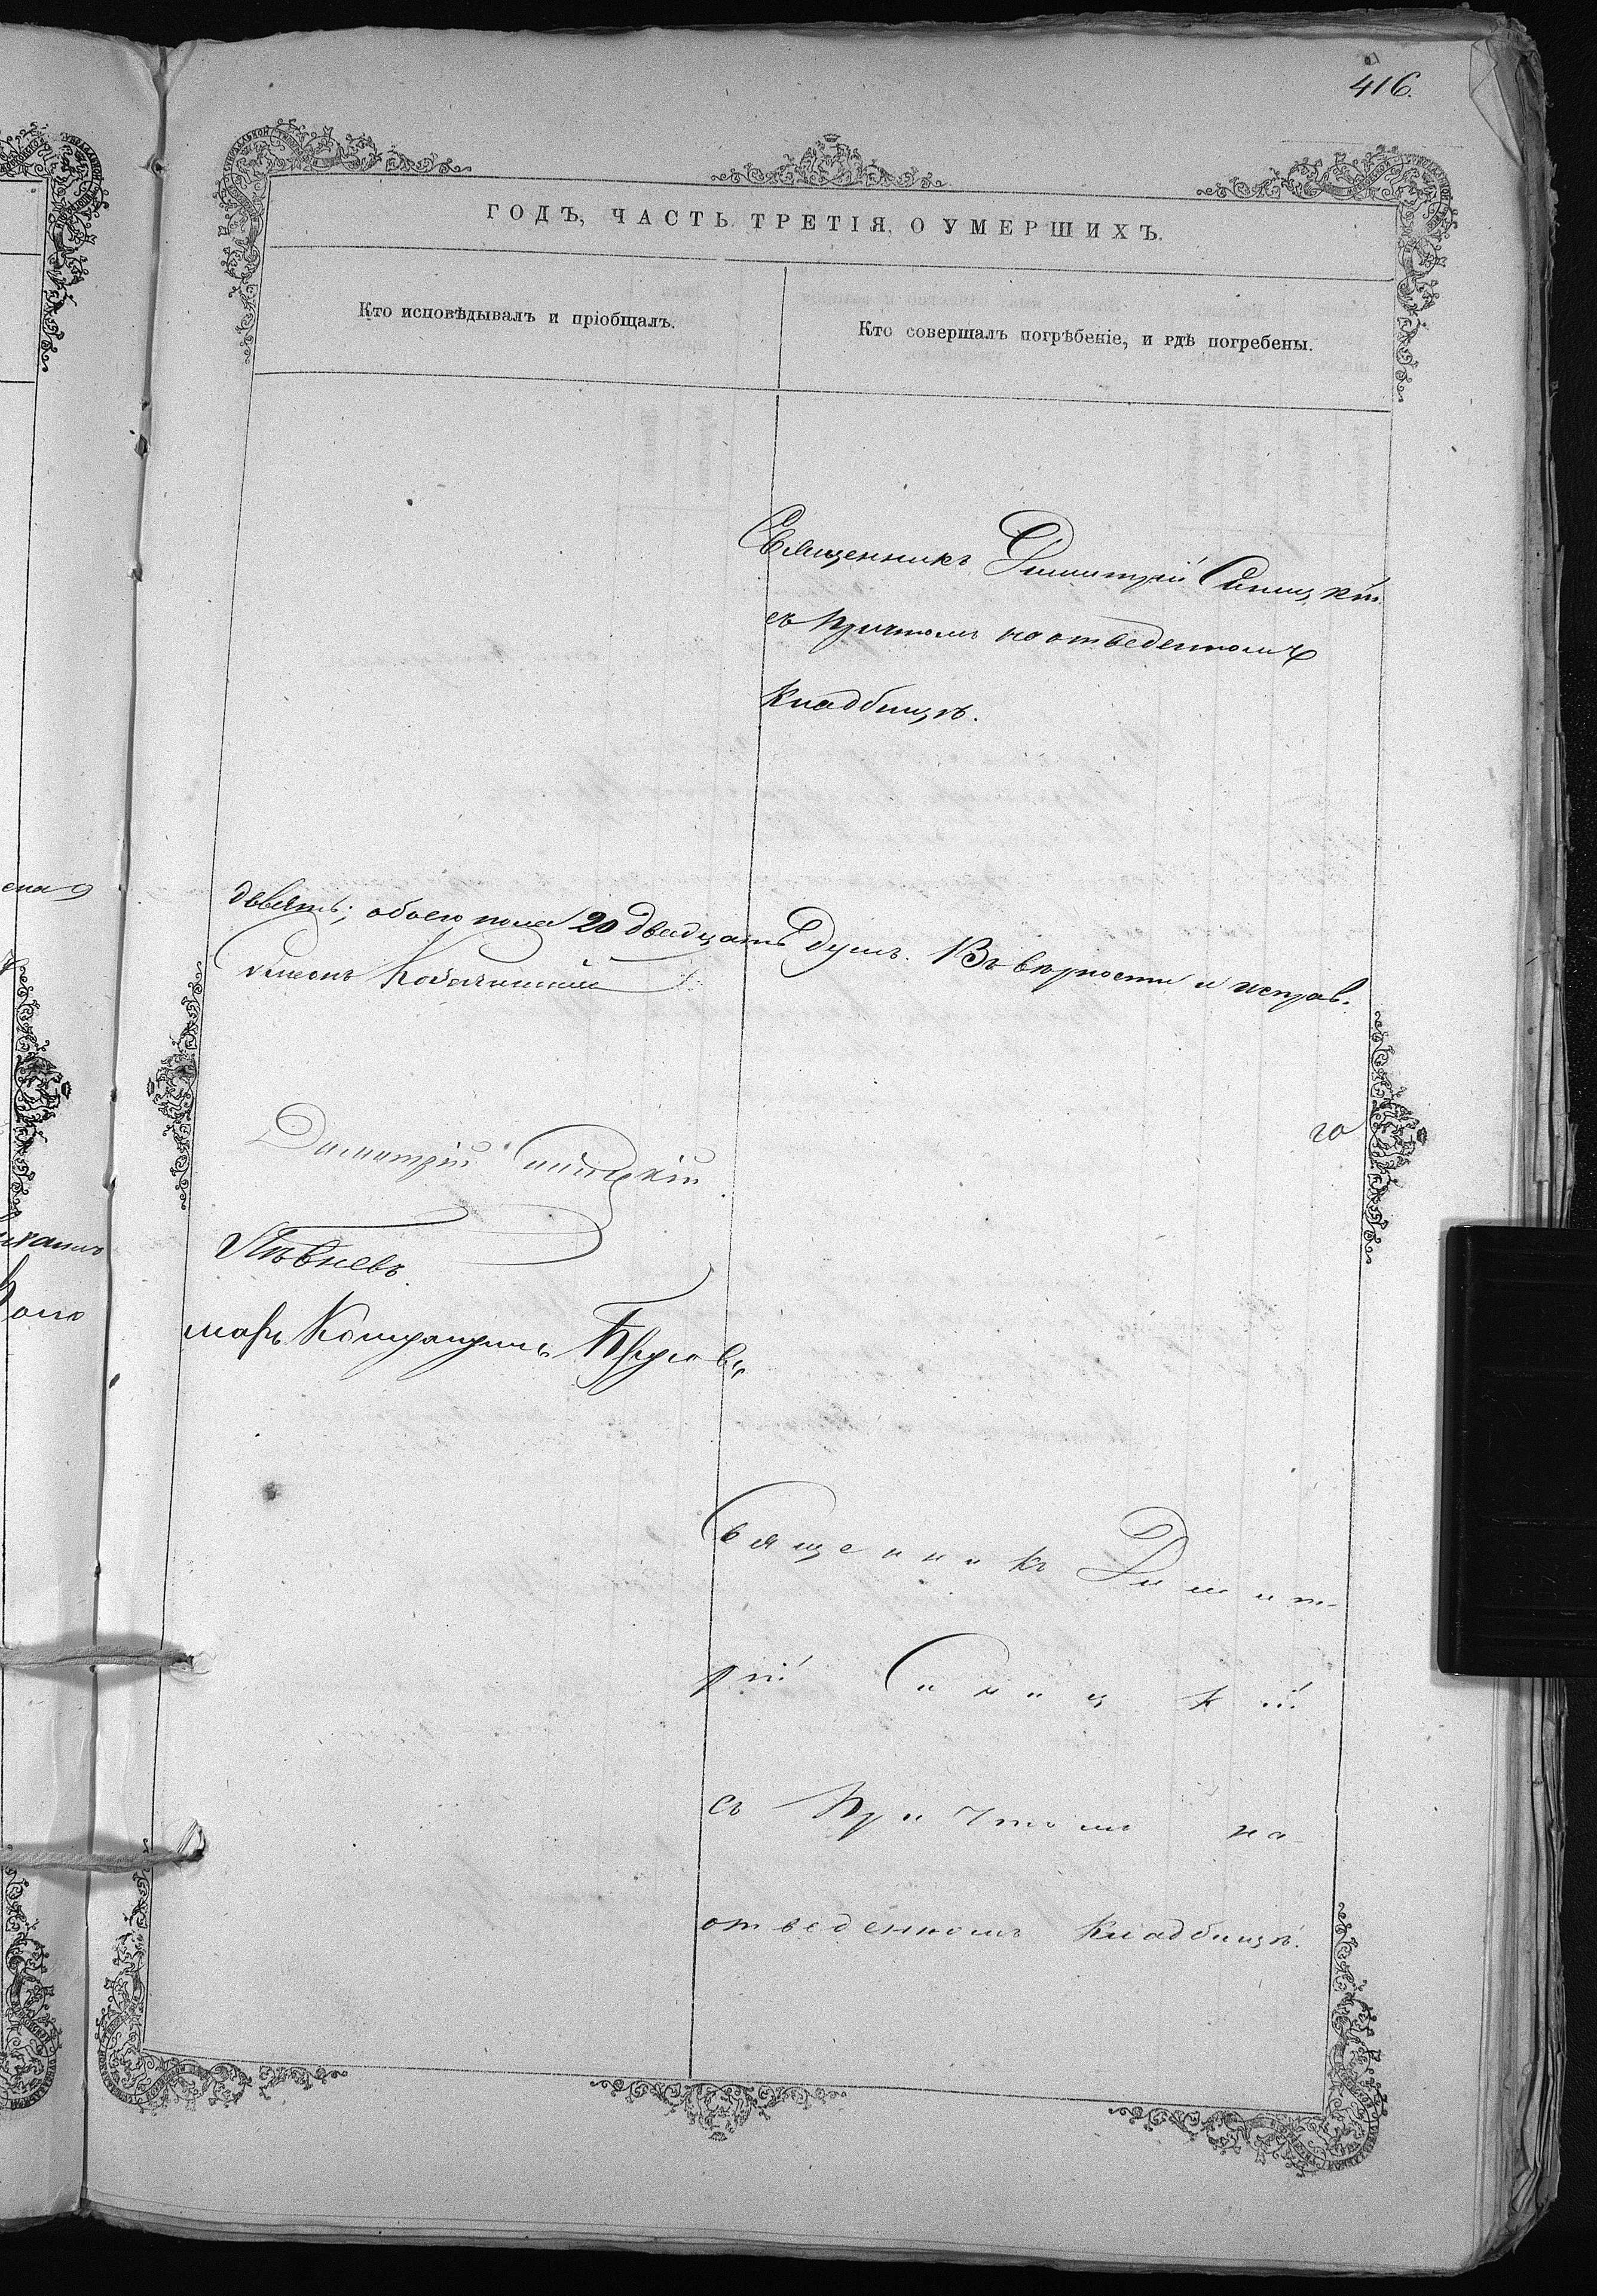 416.
ГОДЪ, ЧАСТЬ ТРЕТІЯ, О УМЕРШИХЪ.
Кто исповѣдывалъ и пріобщалъ.
Кто совершалъ погрѣбеніе, и гдѣ погребены.
Священникъ Димитрій Синицкій
съ Причтомъ на отведенномъ
Кладбищѣ.
девять; обоего пола 20 двадцать Душъ. Въ вѣрности и исправ.
Димитрій Синицкій.
Пѣвневъ.
Священникъ Димит-
рій Синицкій
съ Причтомъ на
отведенномъ Кладбищѣ.